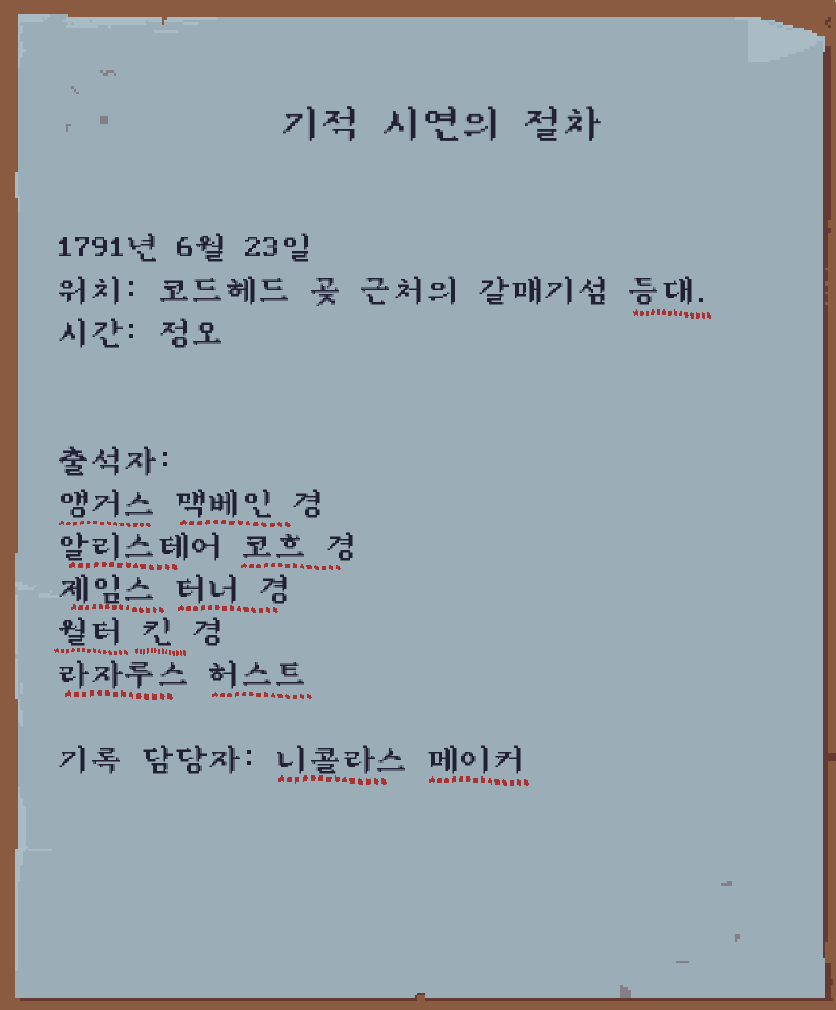 기적 시연의 절차
1791년 6월 23일
위치: 코드헤드 곶 근처의 갈매기섬 등대.
시간: 정오
출석자:
앵거스 맥베인 경
알리스테어 코흐 경
제임스 터너 경
월터 킨 경
라자루스 허스트
기록 담당자: 니콜라스 메이커